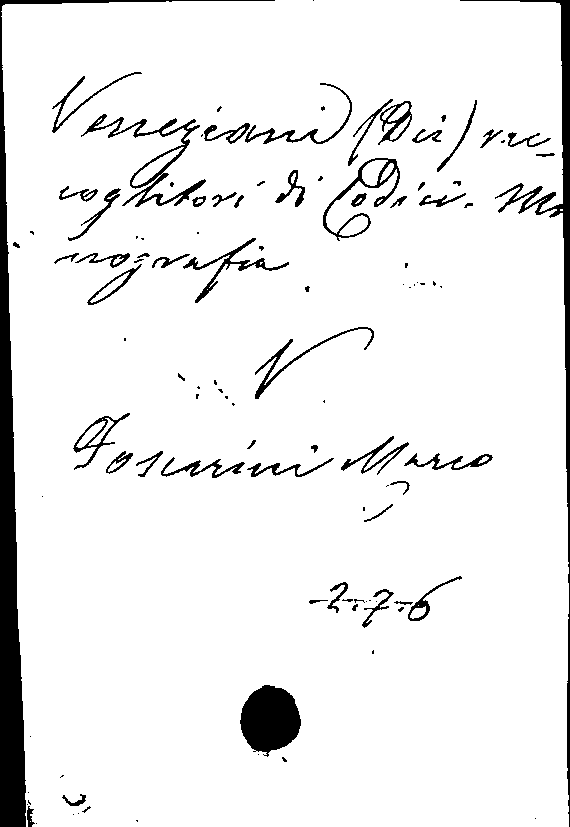 Veneziani (Dei) rac-
coglitori di Codici. Mo
nografia
V
Foscarini Marco
2.7.6